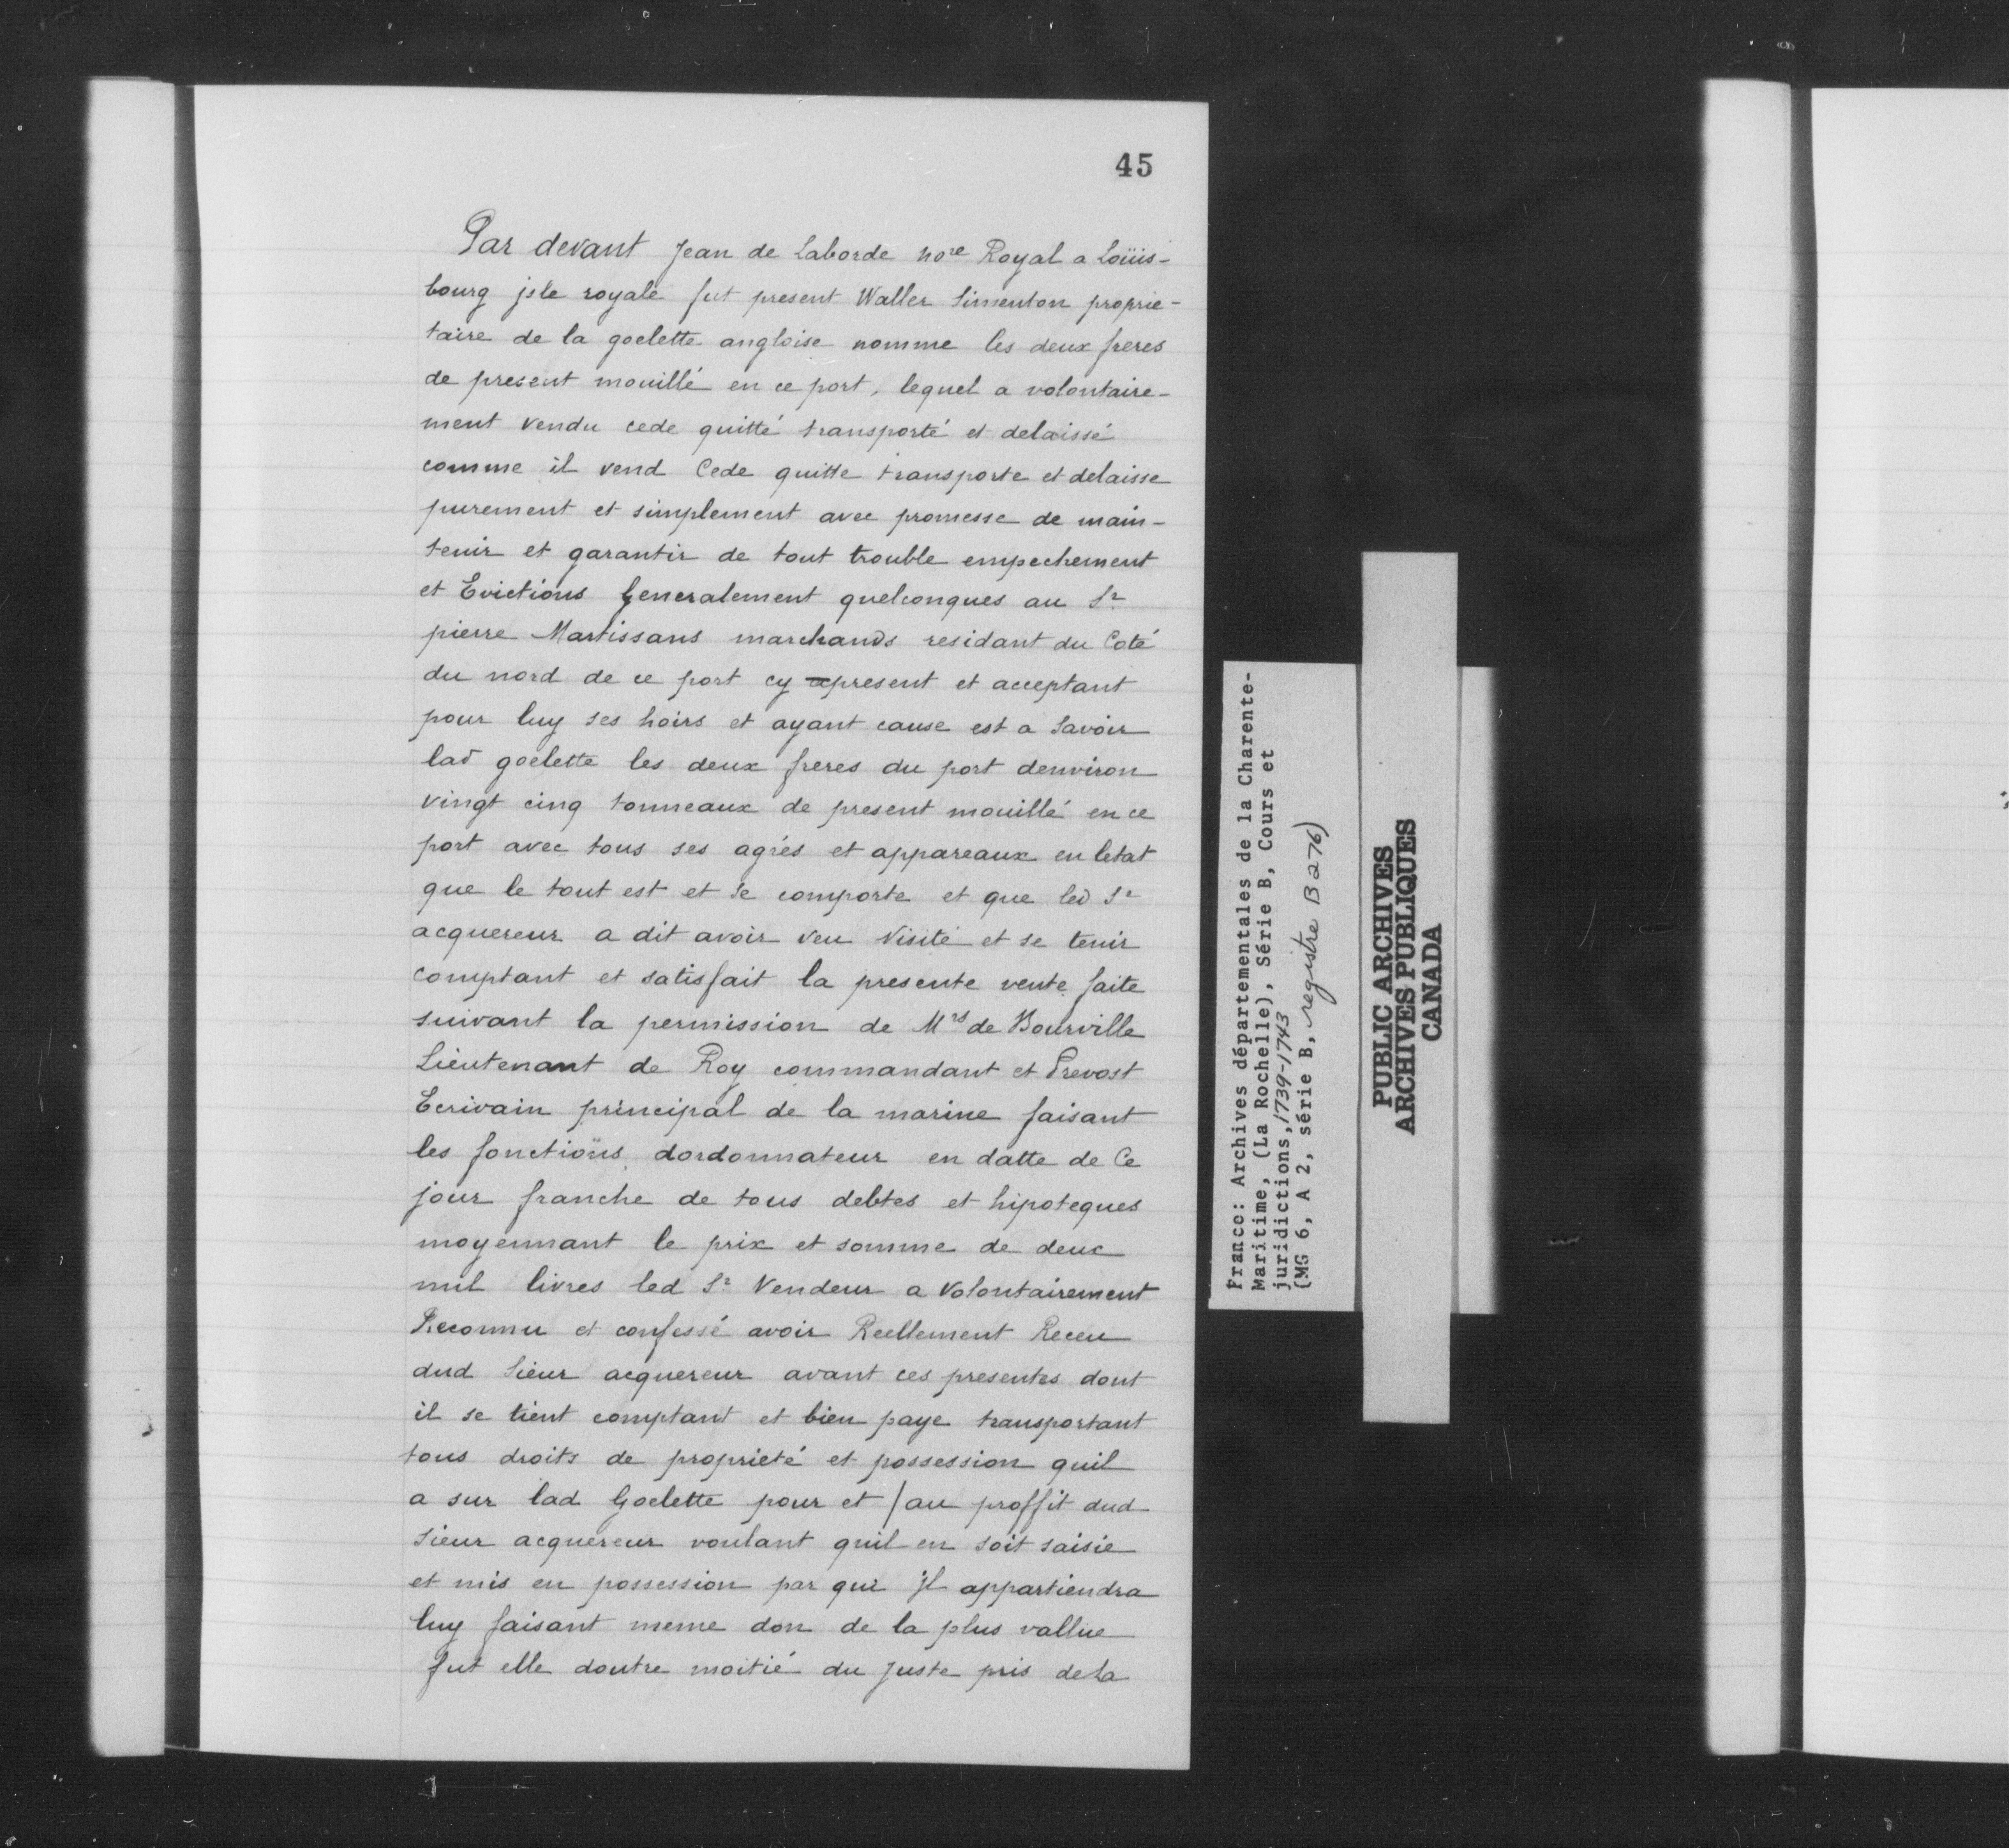 45
Par devant Jean de Laborde nore Royal a Loüis-
bourg jsle royale fut present Waller Simenton proprie-
taire de la goelette angloise nomme les deux freres
de present mouillé en ce port, lequel a volontaire-
ment vendu cede quitté transporté et delaissé
comme il vend Cede quitte transporte et delaisse
purement et simplement avec promesse de main-
tenir et garantir de tout trouble empechement
et Evictions Generalement quelconques au Sr
pierre Martissans marchands residant du Coté
du nord de ce port cy present et acceptant
pour luy ses hoirs et ayant cause est a Savoir
lad goelette les deux freres du port denviron
vingt cinq tonneaux de present mouillé en ce
port avec tous ses agrés et appareaux en letat
que le tout est et se comporte et que led Sr
acquereur a dit avoir veu visité et se tenir
comptant et satisfait la presente vente faite
suivant la permission de Mrs de Bourville
Lieutenant de Roy commandant et Prevost
Ecrivain principal de la marine faisant
les fonctions dordonnateur en datte de Ce
jour franche de tous debtes et hipoteques
moyennant le prix et somme de deux
mil livres led Sr Vendeur a volontairement
Reconnu et confessé avoir Reellement Receu
dud Sieur acquereur avant ces presentes dont
il se tient comptant et bien paye transportant
tous droits de proprieté et possession quil
a sur lad Goelette pour et / au proffit dud
Sieur acquereur voulant quil en soit saisie
et mis en possession par qui jl appartiendra
luy faisant meme don de la plus vallue
fut elle doutre moitié du juste pris de la
France: Archives départementales de la Charente-
Maritime, (La Rochelle), Série B, Cours et
juridictions, 1739-1743
(MG 6, A 2, série B, registre B 276)
PUBLIC ARCHIVES
ARCHIVES PUBLIQUES
CANADA